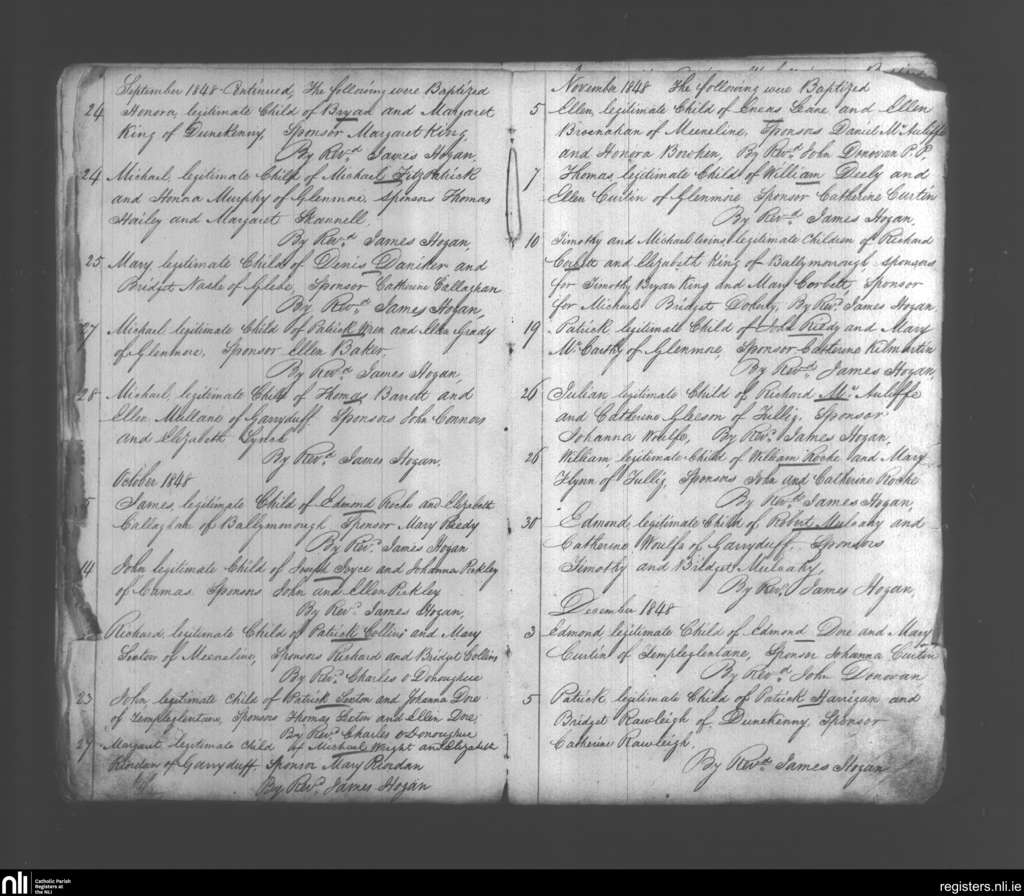 September 1848 Continued, The following were Baptized
24 Honora, legitimate Child of Bryan and Margaret
King of Dunekenny, Sponsor Margaret King,
By Revd. James Hogan,
24 Michael, legitimate Child of Michael FitzPatrick
and Honna Murphy of Glenmore, Sponsors Thomas
Hailey and Margaret Shannell,
By Revd. James Hogan,
25 Mary legitimate Child of Denis Daniher and
Bridget Nashe of Glebe, Sponsor Catherine Callaghan
By Revd. James Hogan,
27 Michael legitimate Child of Patrick Wren and Ellen Grady
of Glenmore, Sponsor Ellen Baker,
By Revd. James Hogan,
28 Michael, legitimate Child of Thomas Barett and
Ellen Mullane of Garryduff Sponsors John Connors
and Elizabeth Lynch
By Revd. James Hogan,
October 1848
5 James, legitimate Child of Edmond Roche and Elizabeth
Callaghan of Ballymorough, Sponsor Mary Reedy
By Revd. James Hogan
14 John legitimate Child of Joseph Joyce and Johanna Kirkley
of Camas. Sponsors John and Ellen Kirkley
By Revd. James Hogan,
Richard, legitimate Child of Patrick Collins and Mary
Sexton of Meeneline, Sponsors Richard and Bridget Collins
By Revd. Charles O Donoghue
23 John, legitimate Child of Patrick Sexton and Johanna Dore
of Templeglentane, Sponsors Thomas Sexton and Ellen Dore,
By Revd. Charles O Donoughue
27 Margaret, legitimate Child of Michael Wright and Elizabeth
Reardan of Garryduff, Sponsor Mary Reardan
By Revd. James Hogan
November 1848 The following were Baptized
5 Ellen, legitimate Child of Eneas Lane, and Ellen
Brosnahan of Meeneline, Sponsors Daniel McAuliffe
and Honora Bowhen, By Revd. John Donovan P.P.
7 Thomas, legitimate Child of William Deely and
Ellen Curtin of Glenmore Sponsor Catherine Curtin
By Revd. James Hogan,
10 Timothy and Michael twins, legitimate Children of Richard
Corbett and Elizabeth King of Ballymorough, sponsors
for Timothy Bryan King and Mary Corbett, Sponsor
for Michael Bridget Doherty, By Revd. James Hogan
19 Patrick, legitimate Child of John Reedy and Mary
McCarthy of Glenmore, Sponsor Catherine Kilmartin
By Revd. James Hogan,
26 Julian legitimate Child of Richard Mc Auliffe
and Catherine Gleeson of Tullig, Sponsor
Johanna Woulfe, By Revd. James Hogan,
26 William, legitimate Child of William Roche and Mary
Flynn of Tullig, Sponsors John and Catherine Roche
By Revd. James Hogan,
30 Edmond, legitimate Child of Robert Mulcahy and
Catherine Woulfe of Garryduff. Sponsors
Timothy and Bridget Mulcahy,
By Revd. James Hogan,
December 1848
3 Edmond, legitimate Child of Edmond Dore and Mary
Curtin of Templeglentane, Sponsor Johanna Curtin
By Revd. John Donovan
5 Patrick legitimate Child of Patrick Harigan and
Bridget Rawleigh of Dunekenny, Sponsor
Catherine Rawleigh,
By Revd. James Hogan
nli
Catholic Parish
Registers at
the NLI
registers.nli.ie